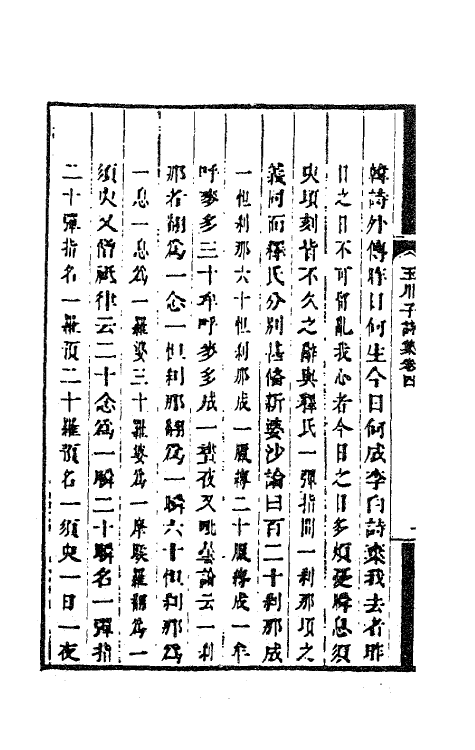 韓詩外傳昨日何生今日何成李白詩棄我去者昨
日之日不可留亂我心者今日之日多煩憂瞬息須
臾頃刻皆不久之辭與釋氏一彈指間一刹那頃之
義同而釋氏分別甚備新婆沙論曰百二十刹那成
一怛刹那六十怛刹那成一臘縛二十臘縛成一牟
呼麥多三十牟呼麥多成一晝夜又毗曇論云一刹
那者翻爲一念一怛刹那翻爲一瞬六十怛刹那爲
一息一息爲一羅婆三十羅婆爲一摩睺羅翻爲一
須臾又僧祇律云二十念爲一瞬二十瞬名一彈指
二十彈指名一羅預二十羅預名一須臾一日一夜
玉川子詩集卷四